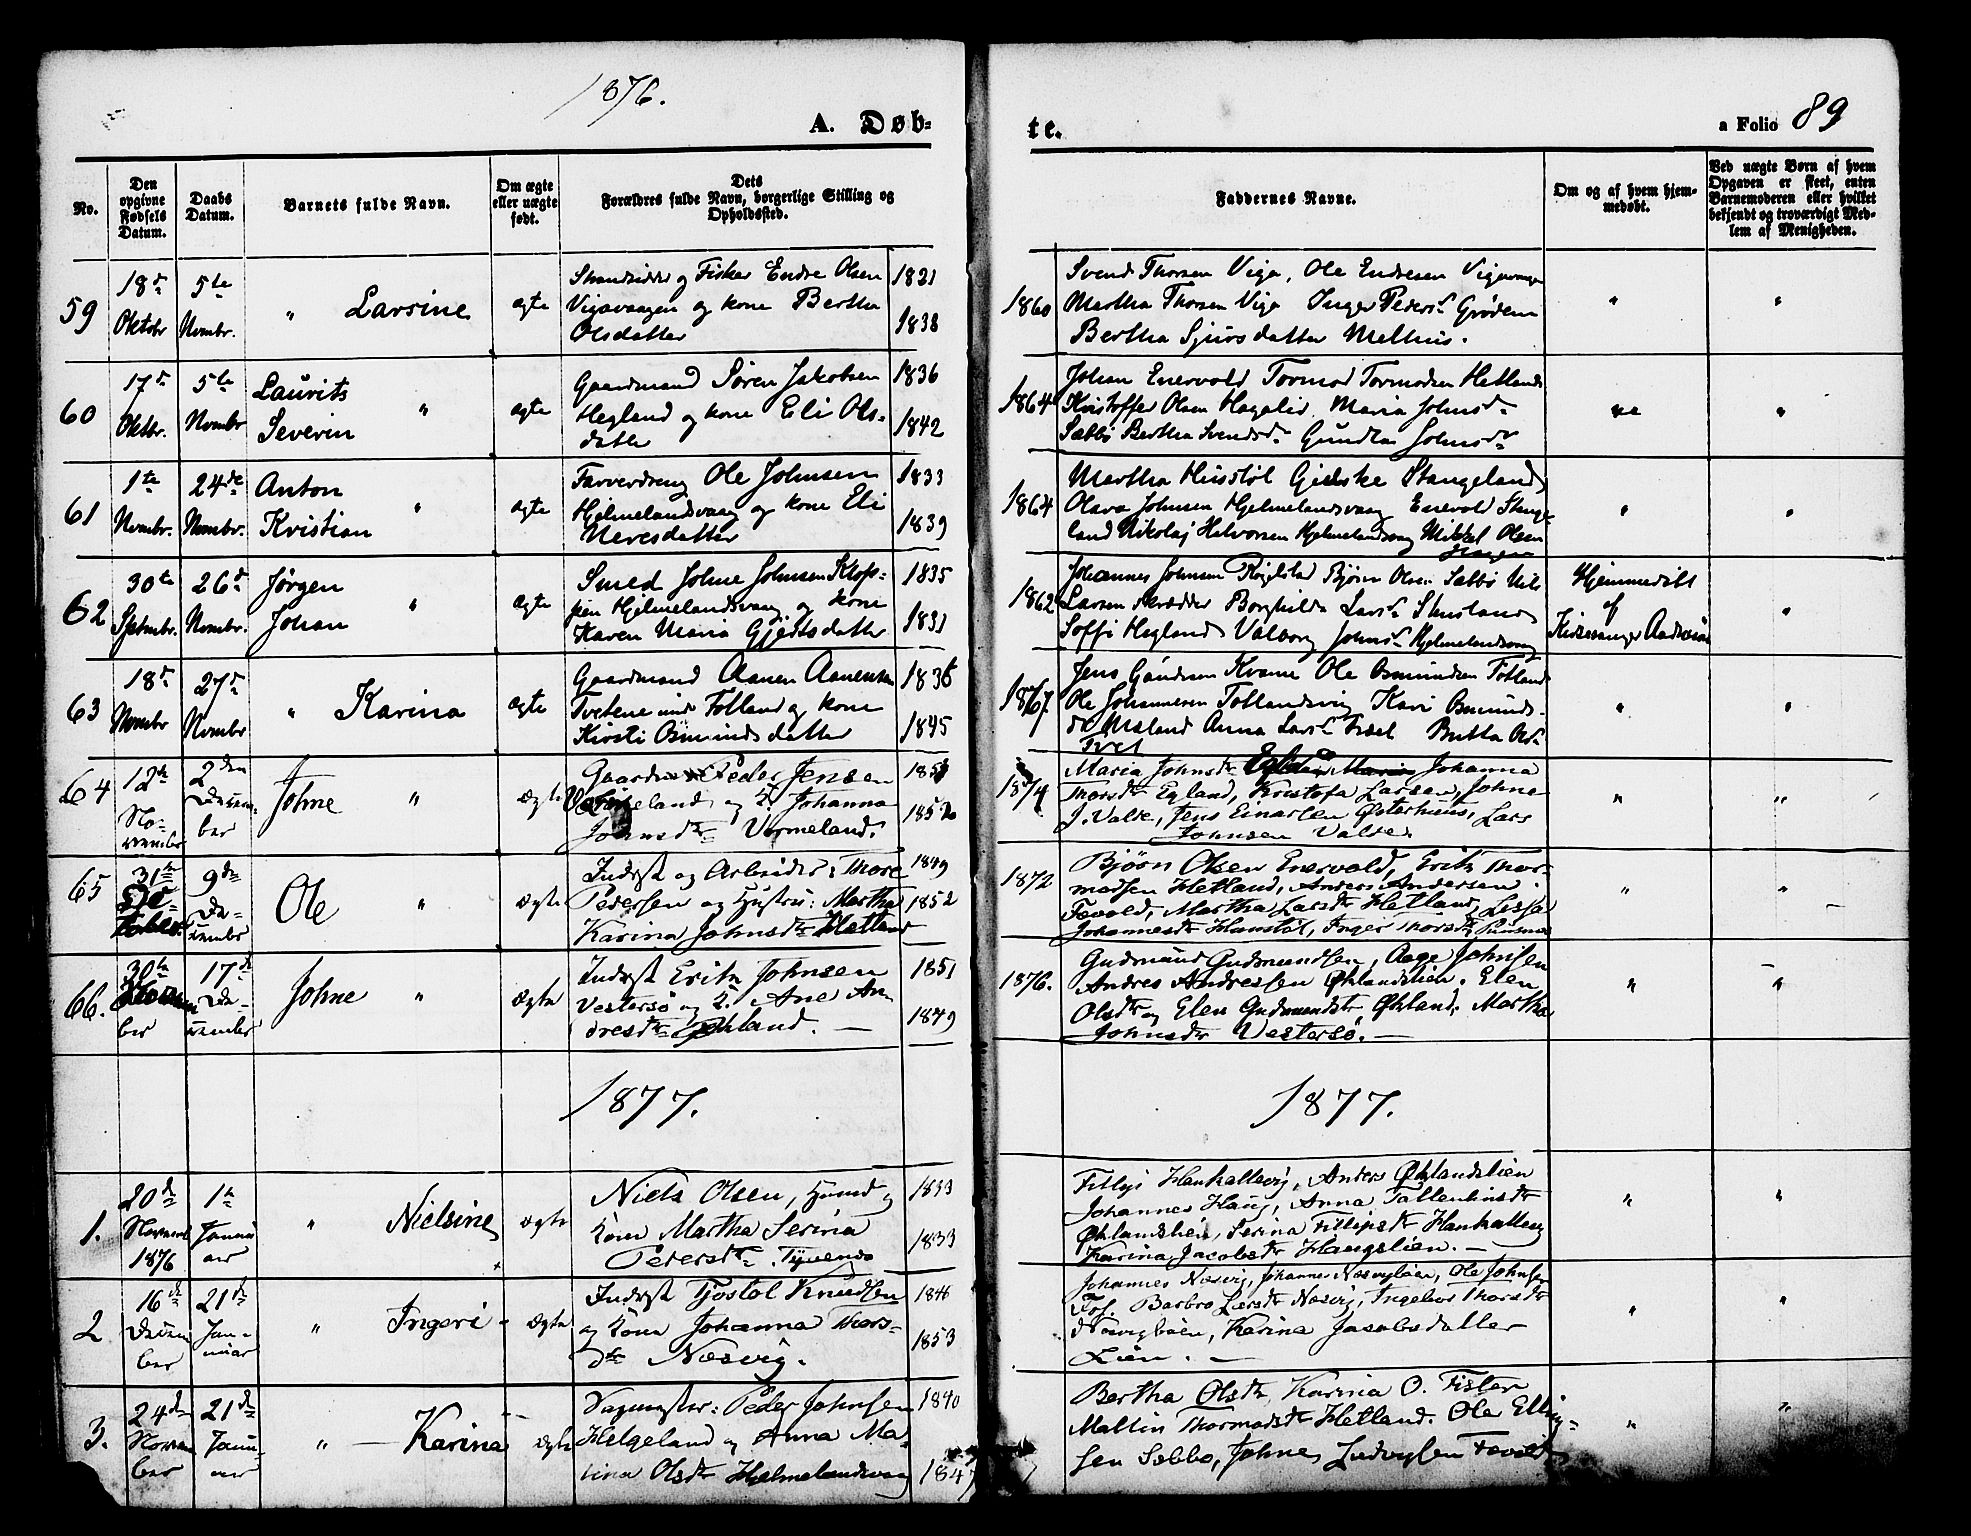 1876.
A. Døb-
te.
a Folio 89
No.
Den
opgivne
Fødsels
Datum.
Daabs
Datum.
Barnets fulde Navn.
Om ægte
eller uægte
født.
Dets
Forældres fulde Navn, borgerlige Stilling og
Opholdssted.
Faddernes Navne.
Om og af hvem hjem-
medøbt.
Ved uægte Børn af hvem
Opgaven er skeet, enten
Barnemoderen eller hvilket
bekjendt og troværdigt Med-
lem af Menigheden.
59
18de
Oktobr
5te
Novmbr.
" Larsine
ægte
Strandsidder og Fisker Endre Olsen
Vigavaagen og kone Bertha
Olsdatter
1821
1838
1860
Svend Thorsen Viga, Ole Endresen Vigavaagen
Martha Thorsen Viga Inger Peders. Grøden
Bertha Sjursdatter Melhus.
"
"
60
17de
Oktbr.
5te
Novmbr
Laurits "
Severin
ægte
Gaardmand Søren Jakobsen
Hegland og kone Eli Ols-
datter
1836
1842
1864
Johan Enervold Tormod Tormodsen Hetland
Kristoffer Olsen Hagalid, Maria Johnsd.
Sæbbø Bertha Svendsd. Gundla Johnsd.
"
61
1te
Novmbr.
24de
Novmbr.
Anton "
Kristian
ægte
Ole Johnsen
Hjelmelandsvaag og kone Eli
Neresdatter
1833
1839
1864
Martha Husstøl Gjertske Stangeland
Olava Johnsen Hjelmelandsvaag Enevold Stange-
land Nikolaj Halvorsen Hjelmelandsvaag Mikkel Olsen
"
"
62
30te
Septmbr.
26de
Novmbr.
Jørgen "
Johan
ægte
Smed Johne Johnsen Klop-
pen Hjelmelandsvaag og kone
Karen Maria Gjertsdatter
1835
1831
1862
Johannes Johnsen Bjørn Olsen Sæbbø Nils
Larsen skrædder Borghilda Lars.
Soffi Hegland Valborg Johns. Hjelmelandsvaag
Hjemmedøbt
af
Kirkesanger
"
63
18de
Novmbr
27de
Novmbr
" Karina
ægte
Gaardmand Aanen Aanensen
Tvetene Fotland og kone
Kirsti Osmundsdatter
1836
1845
1867
Jens Kvame Ole Osmundsen Fotland
Ole Johannesen Tollandsvig Kari Osmunds-
d. Anna Lars. Britta
"
"
64
12te
No-
vember
2den
Decem-
ber
Johne "
ægte
Gaardm. Peder Jensen
og K. Johanna
Johnsdtr Vormeland.
1852
1874
Maria Johnsdtr Johanna
Thorsdtr Egland, Kristofa Larsen, Johne
J. Valse, Jens Einarsen Østerhus, Lars
Johnsen Valse.
"
"
65
31te
9de
De-
cember
Ole "
ægte
Inderst og Arbeider: Thore
Pedersen og Hustru: Martha
Karina Johnsdtr Hetland
1849
1852
1872
Bjørn Olsen Enervold, Erik Thor-
modsen Hetland, Anders Andersen
Tøvold, Martha Larsdtr Hetland,
Johannesdtr Inger Thorsdtr
"
"
66.
30te
ber
17de
De-
cember
Johne "
ægte
Inderst Erik Johnsen
Vestersø og K. Ane An-
dresdtr Økland. —
1851
1849
1876.
Gudmund Gudmundsen, Aage Johnsen
Andres Andressen Øklandslien. Elen
Olsdtr og Elen Gudmundsdtr Økland, Martha
Johnsdtr Vestersø. —
"
"
1877.
1877.
1.
20de
Novemb
1876
1te
Janu-
ar
" Nielsine
ægte
Niels Olsen, Husmd og
Kone Martha Serina
Pedersdtr.
1833
1833
Fillip Hankallevig, Anders Øklandslien
Johannes Haug, Anna
Øklandslien, Serina Fillipsdtr Hankallevig
Karina Jacobsdtr Haugslien. —
"
"
2
16de
Decem
ber
21de
Jan-
uar
" Ingeri -
ægte
Inderst Tjostol Knudsen
og Kone Johanna Thors-
dtr Næsvig.
1846
1853
Johannes Næsvig, Johannes Næsvigbøen, Ole Johnsen
Barbro Larsdtr Næsvig, Ingebor Thorsdtr
Næsvigbøen, Karina Jacobsdatter
Lien. —
"
"
3.
24de
Novem
ber
21de
Janu-
ar
" — Karina
ægte
Peder Johnsen
Helgeland og Anna Ma-
lina Olsdtr Hjelmelandsvaag
1840
1847
Bertha Olsdtr, Karina O. Fister
Maltin Thormodsdtr Hetland. Ole Elling-
sen Sæbbø, Johne Ludvigsen Tøvold
"
"